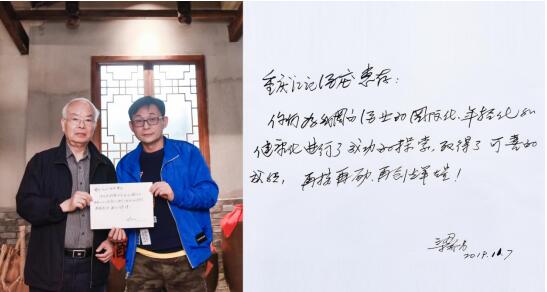 重庆江记酒庄惠存：
你们为我国酒业的国际化、年轻化和
健康化进行了成功的探索，取得了可喜的
成绩，再接再励、再创辉煌！
2019.11.7